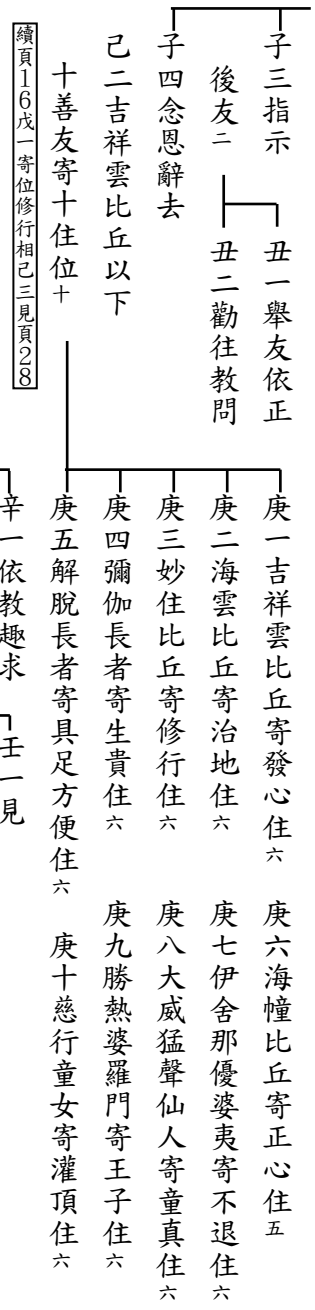 子三指示
後友二
丑一舉友依正
丑二勸往教問
子四念恩辭去
己二吉祥雲比丘以下
十善友寄十住位十
庚一吉祥雲比丘寄發心住六
庚二海雲比丘寄治地住六
庚三妙住比丘寄修行住六
庚四彌伽長者寄生貴住六
庚五解脫長者寄具足方便住六
庚六海幢比丘寄正心住五
庚七伊舍那優婆夷寄不退住六
庚八大威猛聲仙人寄童真住六
庚九勝熱婆羅門寄王子住六
庚十慈行童女寄灌頂住六
續頁16戊一寄位修行相己三見頁28
辛一依教趣求
壬一見